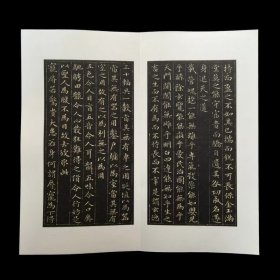 持而盈之不如其已揣而銳不可長保金玉滿
堂莫之能守富貴而驕自遺其咎功成名遂
身退天之道
載營魄抱一能無離乎專氣致柔能如嬰兒
乎滌除玄覽能無疵乎愛民治國能無為乎
天門開闔能無雌乎明白四達能無知乎生之
畜之生而不有為而不恃長而不宰是謂玄德
三十輻共一轂當其無有車之用埏埴以為器
當其無有器之用鑿戶牖以為室當其無有
室之用故有之以為利無之以為用
五色令人目盲五音令人耳聾五味令人口爽
馳騁田獵令人心發狂難得之貨令人行妨是
以聖人為腹不為目故去彼取此
寵辱若驚貴大患若身何謂寵辱為下得